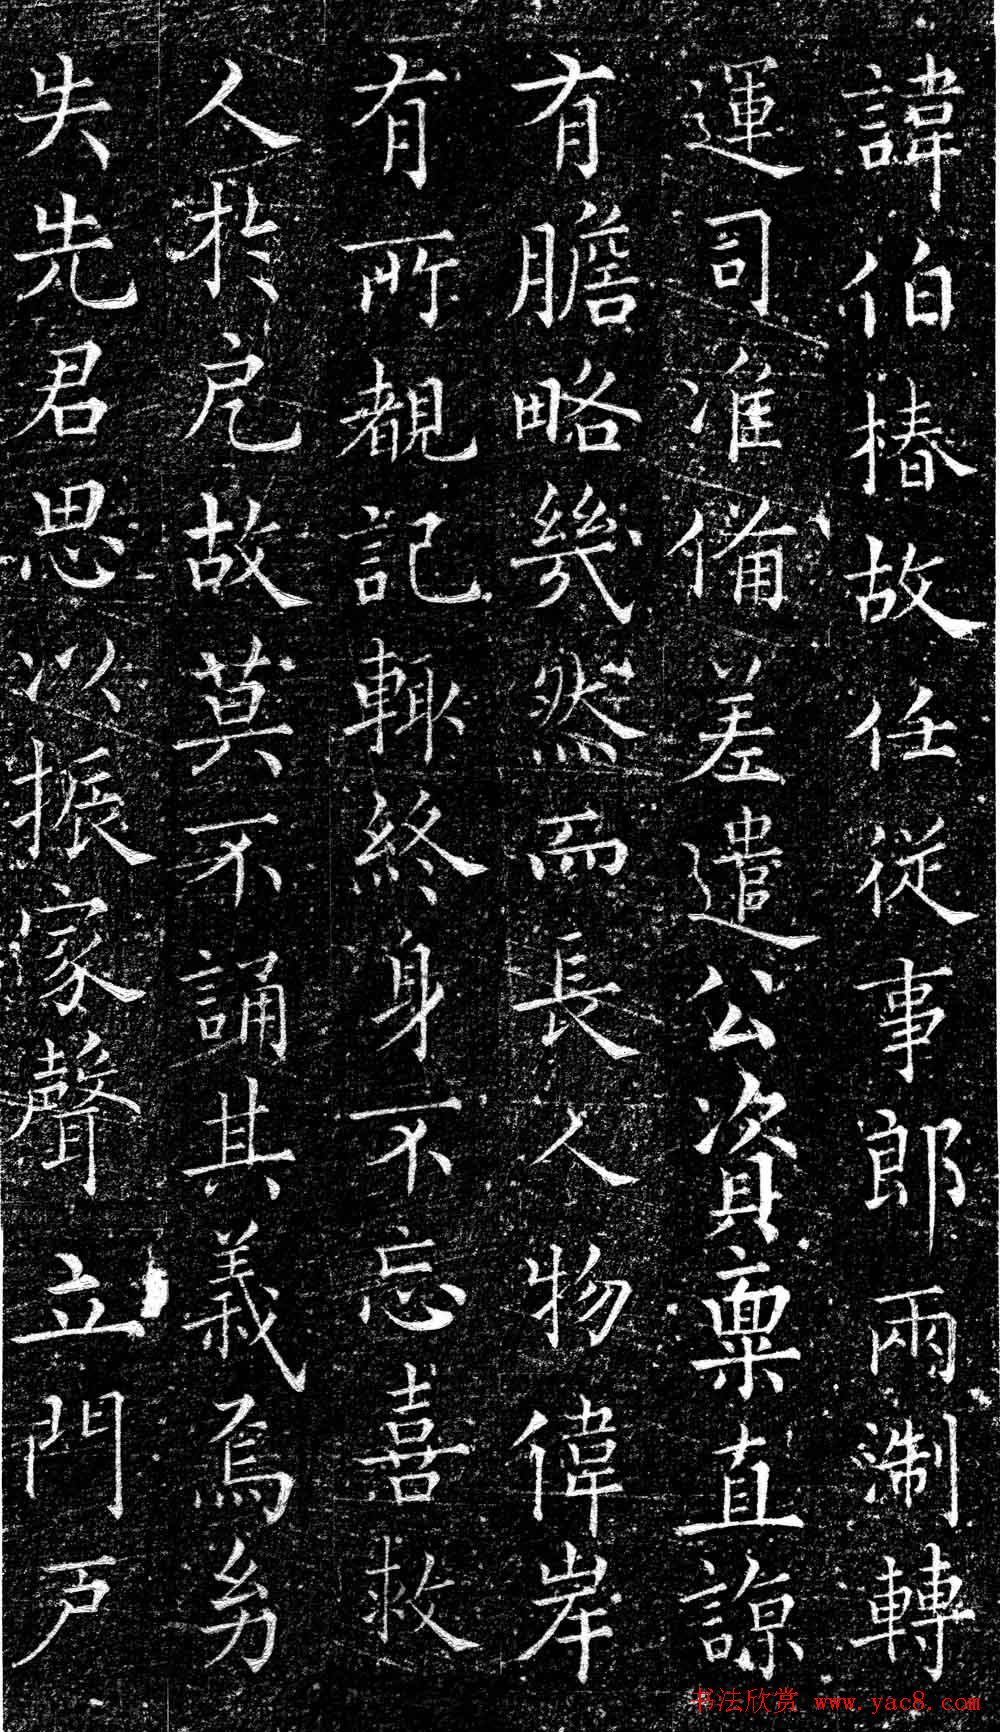 諱伯椿故任從事郎兩淛轉
運司准備差遣公資稟直諒
有膽略幾然而長人物偉岸
有所覩記輙終身不忘喜救
人於戹故莫不誦其義焉㓜
失先君思以振家聲立門戶
书法欣赏 www.yac8.com